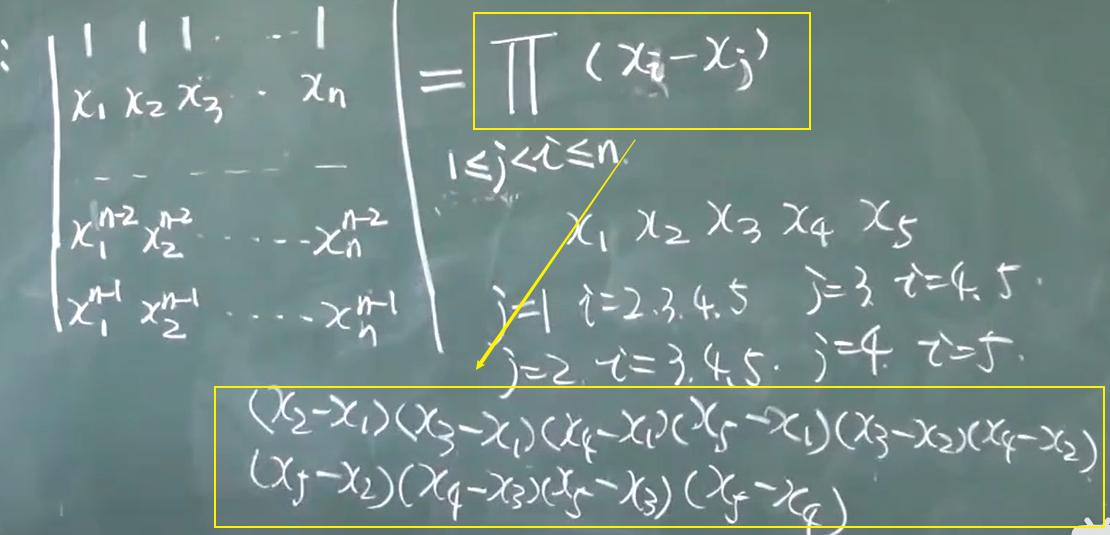 1 1 1 · ·· 1
x₁ x₂ x₃ · · xₙ = ∏ (xᵢ-xⱼ)
1≤j<i≤n.
x₁ⁿ⁻² x₂ⁿ⁻² ······ xₙⁿ⁻²
x₁ⁿ⁻¹ x₂ⁿ⁻¹ ······ xₙⁿ⁻¹
x₁ x₂ x₃ x₄ x₅
j=1 i=2.3.4.5 j=3. i=4.5.
j=2. i=3.4.5. j=4. i=5.
(x₂-x₁)(x₃-x₁)(x₄-x₁)(x₅-x₁)(x₃-x₂)(x₄-x₂)
(x₅-x₂)(x₄-x₃)(x₅-x₃)(x₅-x₄)